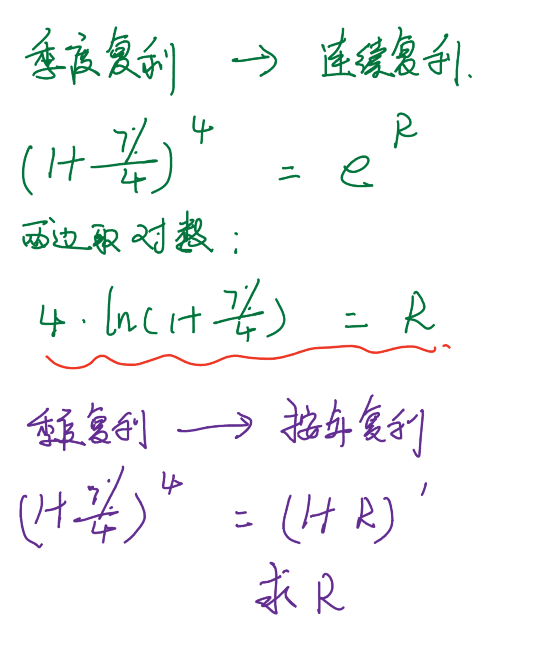 季度复利 → 连续复利.
(1+7%/4)^4 = e^R
两边取对数:
4·ln(1+7%/4) = R
季度复利 → 按年复利
(1+7%/4)^4 = (1+R)^1
求R